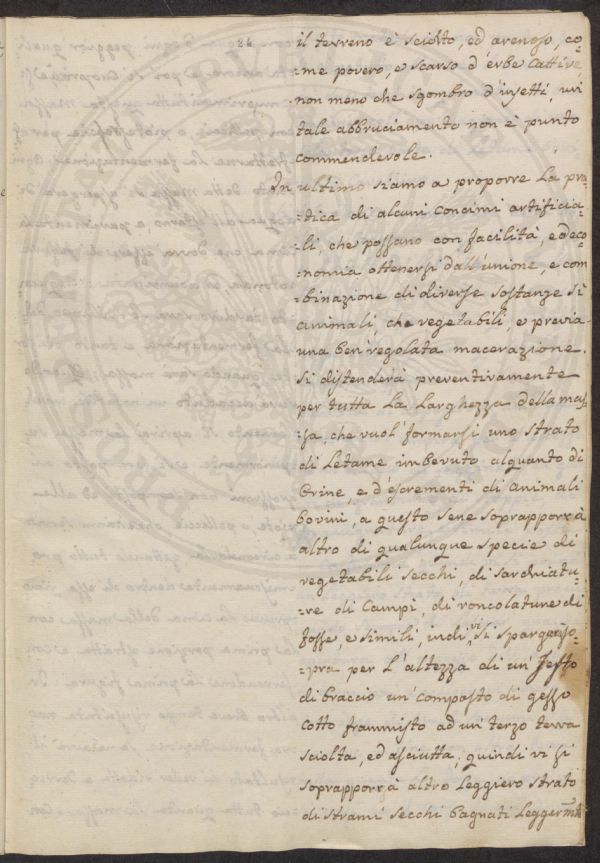 84
il terreno è sciolto, ed arenoso, co-
-me povero, e scarso d'erbe cattive
non meno che sgombro d'insetti, un
tale abbruciamento non è punto
commendevole.
In ultimo siamo a proporre la pra-
-tica di alcuni concimi artificia-
-li, che possano con facilità, ed eco-
-nomia ottenersi dall'unione, e com-
-binazione di diverse sostanze sì
animali, che vegetabili, e previa
una ben regolata macerazione.
Si distenderà preventivamente
per tutta la larghezza della mas-
-sa, che vuol formarsi uno strato
di letame imbevuto alquanto di
Orine, e d'escrementi di animali
bovini, a questo sene soprapporrà
altro di qualunque specie di
vegetabili secchi, di sarchiatu-
-re di Campi, di roncolature di
fosse, e simili, indi vi si sparga so-
-pra per l'altezza di un sesto
di braccio un composto di gesso
cotto frammisto ad un terzo terra
sciolta, ed asciutta, quindi vi si
soprapporrà altro leggiero strato
di strami secchi bagnati leggermte